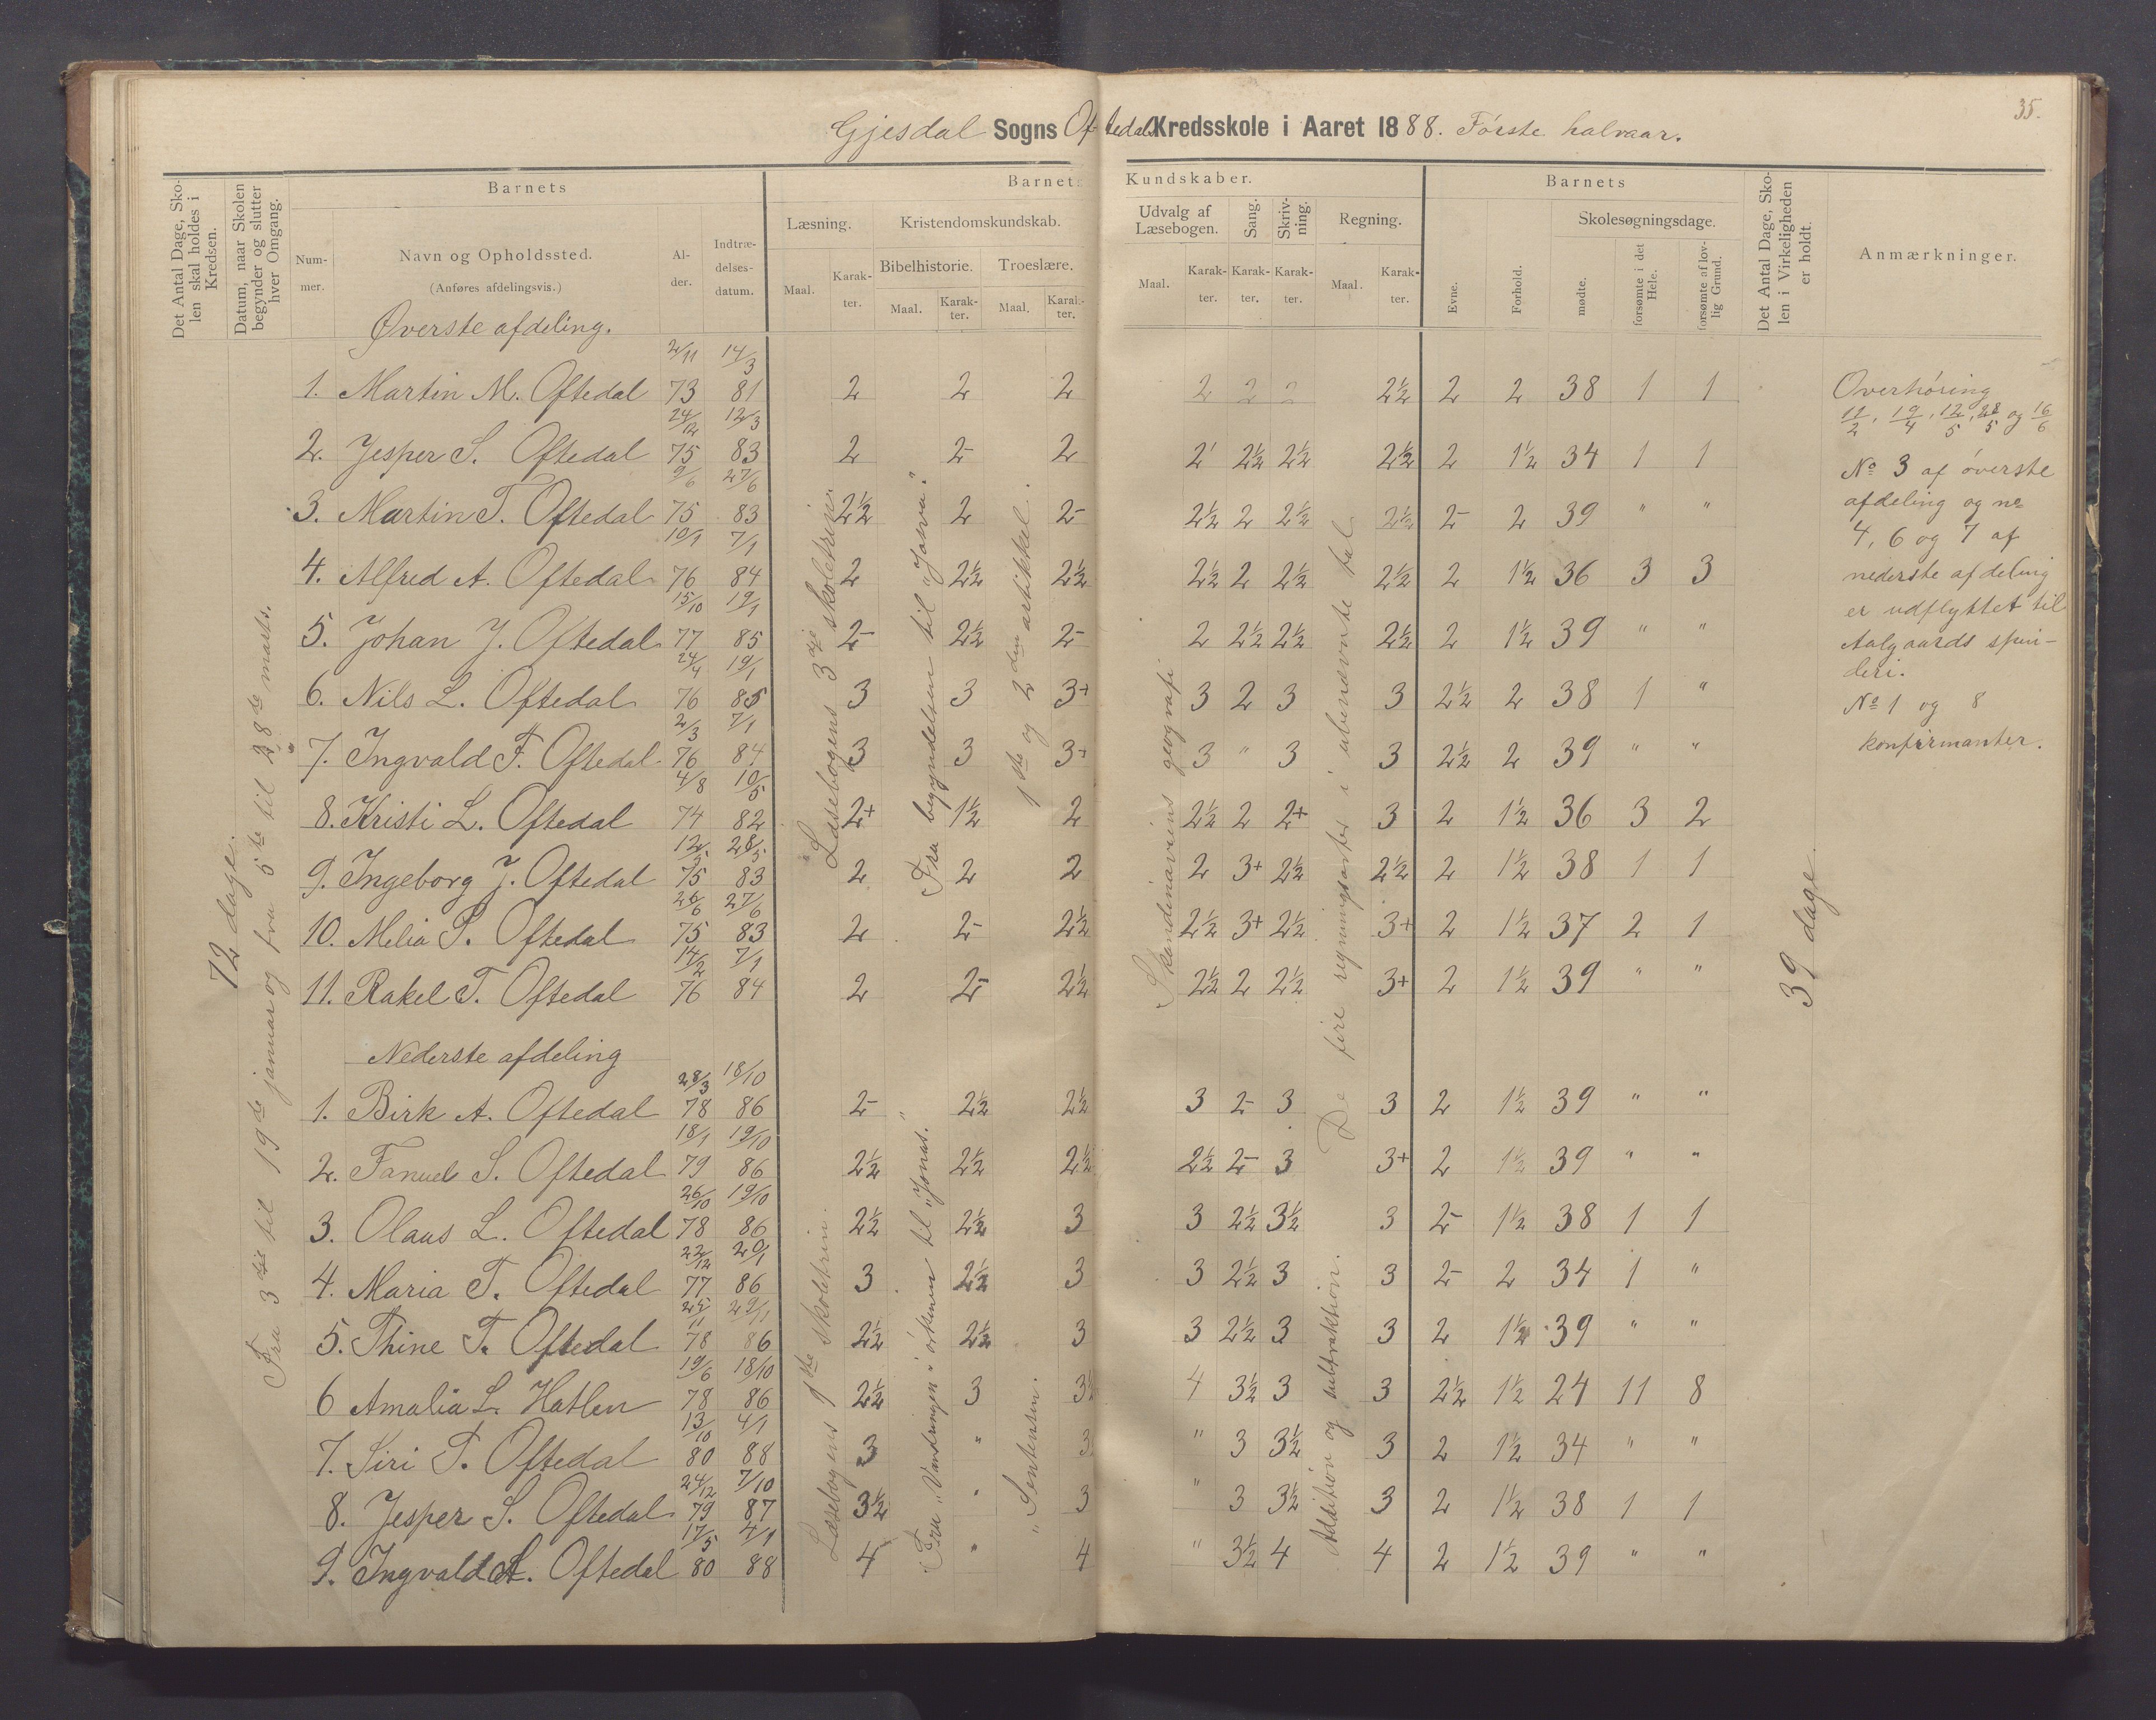 35.
Gjesdal Sogns Oftedals Kredsskole i Aaret 1888. Første halvaar.
Det Antal Dage, Skolen skal holdes i Kredsen.
Datum, naar Skolen begynder og slutter hver Omgang.
Barnets
Nummer.
Navn og Opholdssted.
(Anføres afdelingsvis.)
Alder.
Indtrædelsesdatum.
Barnets Kundskaber.
Læsning.
Maal.
Karakter.
Kristendomskundskab.
Bibelhistorie.
Maal.
Karakter.
Troeslære.
Maal.
Karakter.
Udvalg af Læsebogen.
Maal.
Karakter.
Sang.
Karakter.
Skrivning.
Karakter.
Regning.
Maal.
Karakter.
Barnets
Evne.
Forhold.
Skolesøgningsdage.
mødte.
forsømte i det Hele.
forsømte af lovlig Grund.
Det Antal Dage, Skolen i Virkeligheden er holdt.
Anmærkninger.
72 dage.
Fra 3die til 19de januar og fra 5te til 28de marts.
Læsebogens 3die skoletrin.
Fra begyndelsen til "Josva".
1ste og 2den artikkel.
Skandinaviens geografi
De fire regningsarter i ubenævnte tal
39 dage.
Øverste afdeling.
1. Martin M. Oftedal 2/11 73 14/3 81 2 2 2 2 2 2 2½ 2 2 38 1 1
2. Jesper S. Oftedal 24/12 75 12/3 83 2 2- 2 2' 2½ 2½ 2½ 2 1½ 34 1 1
3. Martin T. Oftedal 9/6 75 27/6 83 2½ 2 2- 2½ 2 2½ 2½ 2- 2 39 " "
4. Alfred A. Oftedal 10/1 76 7/1 84 2 2½ 2½ 2½ 2 2½ 2½ 2 1½ 36 3 3
5. Johan J. Oftedal 15/10 77 19/1 85 2- 2½ 2- 2 2½ 2½ 2½ 2 1½ 39 " "
6. Nils L. Oftedal 24/4 76 19/1 85 3 3 3+ 3 2 3 3 2½ 2 38 1 "
7. Ingvald F. Oftedal 2/3 76 7/1 84 3 3 3+ 3 " 3 3 2½ 2 39 " "
8. Kristi L. Oftedal 4/8 74 10/5 82 2+ 1½ 2 2½ 2 2+ 3 2 1½ 36 3 2
9. Ingeborg J. Oftedal 12/5 75 28/5 83 2 2 2 2 3+ 2½ 2½ 2 1½ 38 1 1
10. Melia P. Oftedal 26/6 75 27/6 83 2 2- 2½ 2½ 3+ 2½ 3+ 2 1½ 37 2 1
11. Rakel T. Oftedal 14/2 76 7/1 84 2 2- 2½ 2½ 2 2½ 3+ 2 1½ 39 " "
Nederste afdeling
Læsebogens 1ste skoletrin.
Fra "Vandringen i ørkenen til "Jonas."
"Sentensen.
Addition og subtraktion.
1. Birk A. Oftedal 28/3 78 18/10 86 2- 2½ 2½ 3 2- 3 3 2 1½ 39 " "
2. Fanuel S. Oftedal 18/1 79 19/10 86 2½ 2½ 2½ 2½ 2- 3 3+ 2 1½ 39 " "
3. Olaus L. Oftedal 26/10 78 19/10 86 2½ 2½ 3 3 2½ 3½ 3 2- 1½ 38 1 1
4. Maria T. Oftedal 22/12 77 29/1 86 3 2½ 3 3 2½ 3 3 2- 2 34 1 "
5. Thine T. Oftedal 25/11 78 29/1 86 2½ 2½ 3 3 2½ 3 3 2 1½ 39 " "
6 Amalia L. Hatlen 19/6 78 18/10 86 2½ 3 3½ 4 3½ 3 3 2½ 1½ 24 11 8
7. Siri T. Oftedal 13/10 80 4/1 88 3 " 3 " 3 3½ 3 2 1½ 34 " "
8. Jesper S. Oftedal 24/12 79 7/10 87 3½ " 3 " 3 3½ 3 2 1½ 38 1 1
9. Ingvald A. Oftedal 17/5 80 4/1 88 4 " 4 " 3½ 4 4 2 1½ 39 " "
Overhøring
12/2, 19/4, 12/5, 28/5 og 16/6
No 3 af øverste
afdeling og no
4, 6 og 7 af
nederste afdeling
er udflyttet til
Aalgaards spin-
deri.
No 1 og 8
konfirmanter.